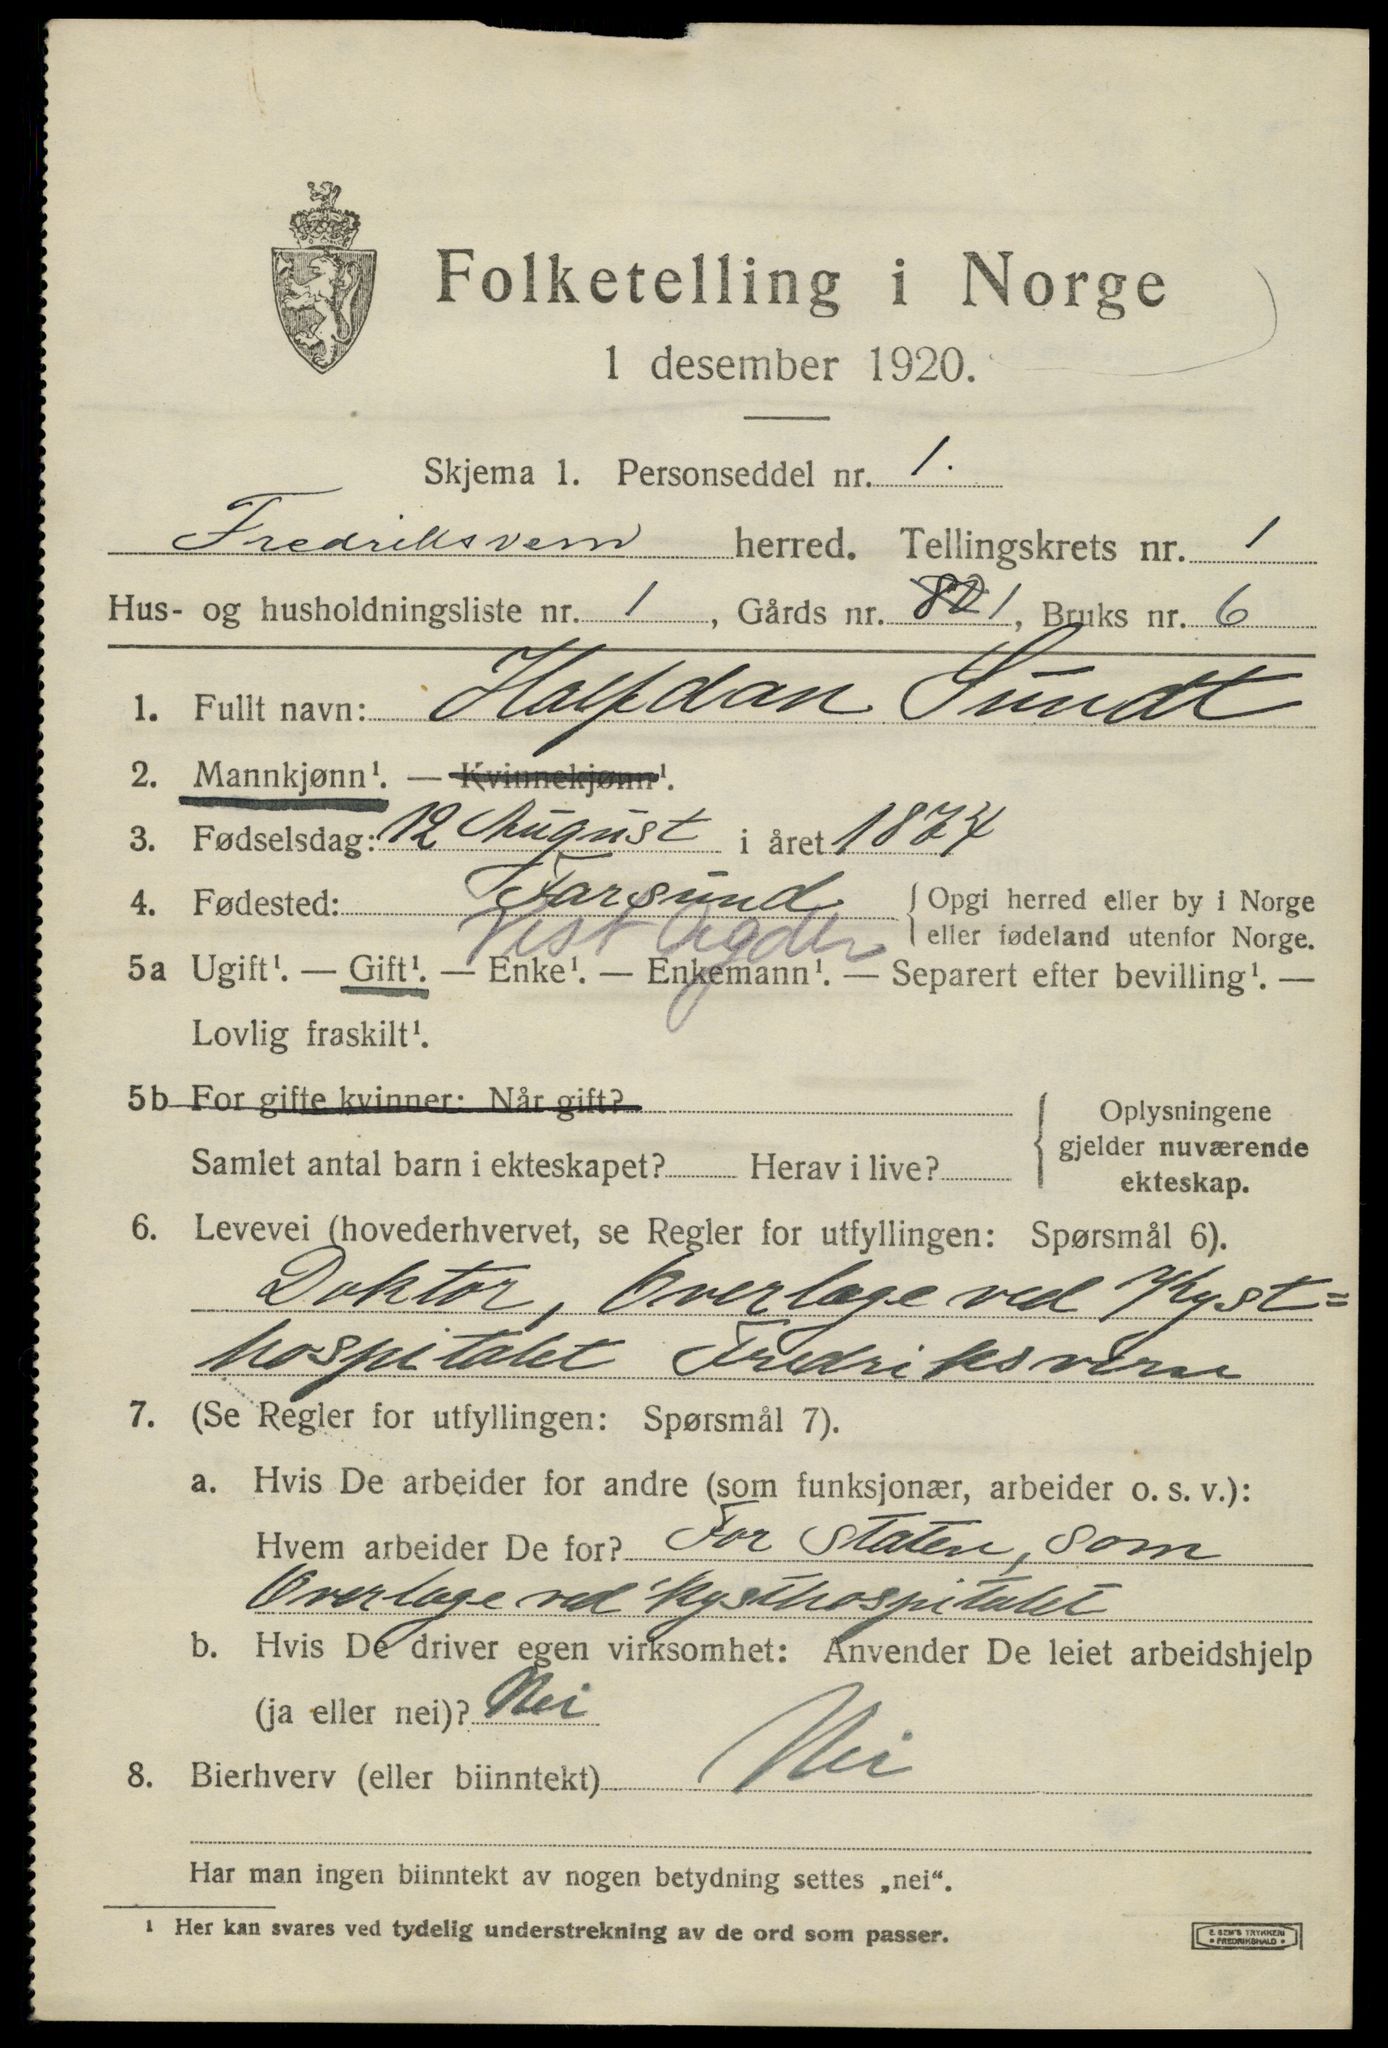 Folketelling i Norge
1 desember 1920.
Skjema 1. Personseddel nr. 1.
Fredriksvern herred. Tellingskrets nr. 1
Hus- og husholdningsliste nr. 1, Gårds nr. 821, Bruks nr. 6
1. Fullt navn: Halfdan Sundt
2. Mannkjønn¹. — Kvinnekjønn¹.
3. Fødselsdag: 12 August i året 1874
4. Fødested: Farsund { Opgi herred eller by i Norge
Vest Agder eller fødeland utenfor Norge.
5a Ugift¹. — Gift¹. — Enke¹. — Enkemann¹. — Separert efter bevilling¹. —
Lovlig fraskilt¹.
5b For gifte kvinner: Når gift?
Samlet antal barn i ekteskapet? Herav i live?
{ Oplysningene
gjelder nuværende
ekteskap.
6. Levevei (hovederhvervet, se Regler for utfyllingen: Spørsmål 6).
Doktor, Overlæge ved Kyst=
hospitalet Fredriksvern
7. (Se Regler for utfyllingen: Spørsmål 7).
a. Hvis De arbeider for andre (som funksjonær, arbeider o. s. v.):
Hvem arbeider De for? For Staten, som
Overlæge ved Kysthospitalet
b. Hvis De driver egen virksomhet: Anvender De leiet arbeidshjelp
(ja eller nei)? Nei
8. Bierhverv (eller biinntekt) Nei
Har man ingen biinntekt av nogen betydning settes „nei“.
¹ Her kan svares ved tydelig understrekning av de ord som passer.
E. SEM'S TRYKKERI
• FREDRIKSHALD •